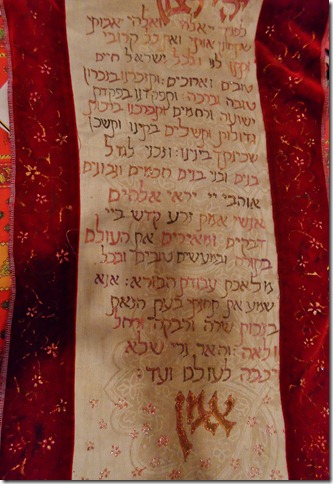 יהי רצון
לפניך יי אלהי ואלהי אבותי
שתחונן אותי ואת כל קרובי
ותתן לנו ולכל ישראל חיים
טובים וארוכים: ותזכרנו בזכרון
טובה וברכה: ותפקדנו בפקדת
ישועה ורחמים ותברכנו ברכות
גדולות ותשלים בתינו ותשכן
שכינתך בינינו: וזכני לגדל
בנים ובני בנים חכמים ונבונים
אוהבי יי יראי אלהים
אנשי אמת זרע קדש ביי
דבקים ומאירים את העולם
בתורה ובמעשים טובים ובכל
מלאכת עבודת הבורא: אנא
שמע את תחנתי בעת הזאת
בזכות שרה ורבקה ורחל
ולאה: והאר נרי שלא
יכבה לעולם ועד:
אמן